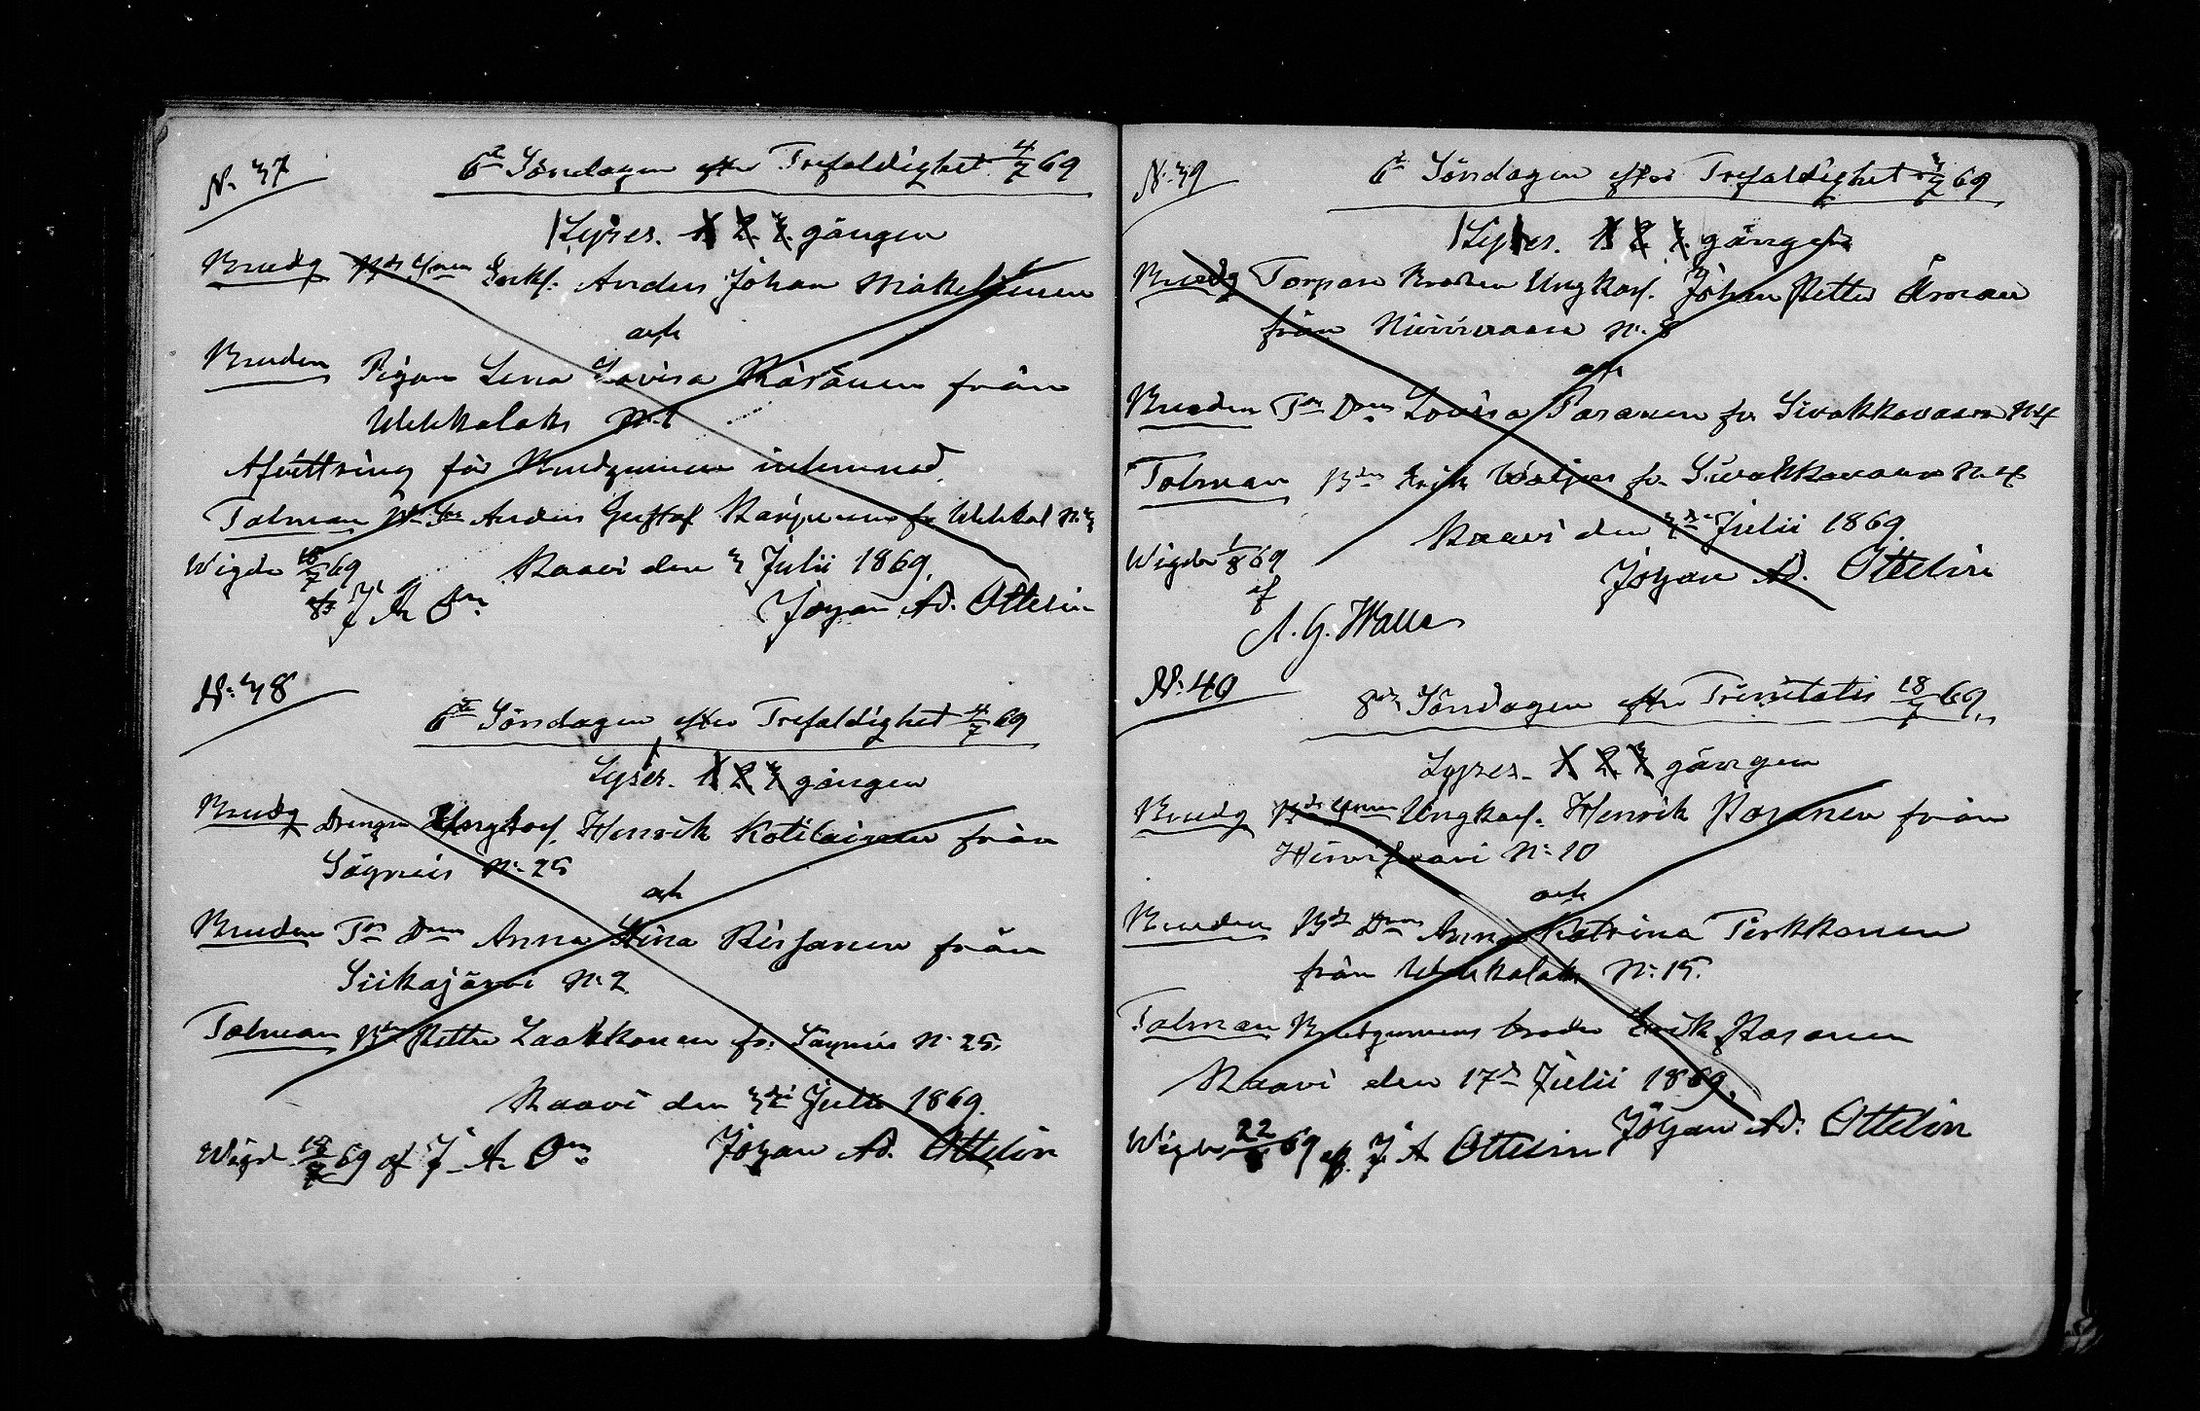 N. 37
6te Söndagen efter Trefaldighet 4/7 69
Lyses. 1 2. 3. gången
Brudg Bde Sonen Enkl. Anders Johan Mäkeläinen
och
Bruden Pigan Lena Lovisa Räsänen från
Uhkalaks N. 1
Afvittring för Brudgummen inlemnad.
Talman Anders Gustaf Karjunen fr Uhkal N. 3
Wigde 18/7 69 Kaavi den 3 Julii 1869.
af J. A. Onn Johan Ad. Ottelin
N: 38
6te Söndagen efter Trefaldighet 4/7 69
Lyses. 1 2. 3. gången
Brudg Drengen Ungkarl. Henrik Kotilainen från
Säyneis N: 25
och
Bruden Tor Dren Anna Stina Rissanen från
Siikajärvi N: 2
Talman Bden Petter Laakkonen fr: Säyneis N: 25.
Kaavi den 3dje Julii 1869.
Wigd 18/7 69 af J. A. Onn Johan Ad. Ottelin
N: 39
6te Söndagen efter Trefaldighet 4/7 69
Lyses. 1 2. 3. gången
Brudg Torpare Brodren Ungkarl. Johan Petter Åman
från Niinivaara N: 8
och
Bruden Tor Dren Lovisa Pasanen fr Sivakkavaara N: 4
Talman Bden Erik Väljas fr Sivakkavaara N: 4
Kaavi den 3dje Julii 1869.
Wigde 1/8 69 Johan Ad. Ottelin
af
A. G. Walle
N: 40
8de Söndagen efter Trinitatis 18/7 69.
Lyses. 1 2. 3. gången
Brudg Bde Sonen Ungkarl. Henrik Pasanen från
Hirvisaari N: 10
och
Bruden Bde Dren Anna Katrina Tirkkonen
från Uhkalaks N: 15.
Talman Brudgummens broder Erik Pasanen
Kaavi den 17de Julii 1869.
Wigde 22/8 69 af. J. A. Ottelin Johan Ad. Ottelin